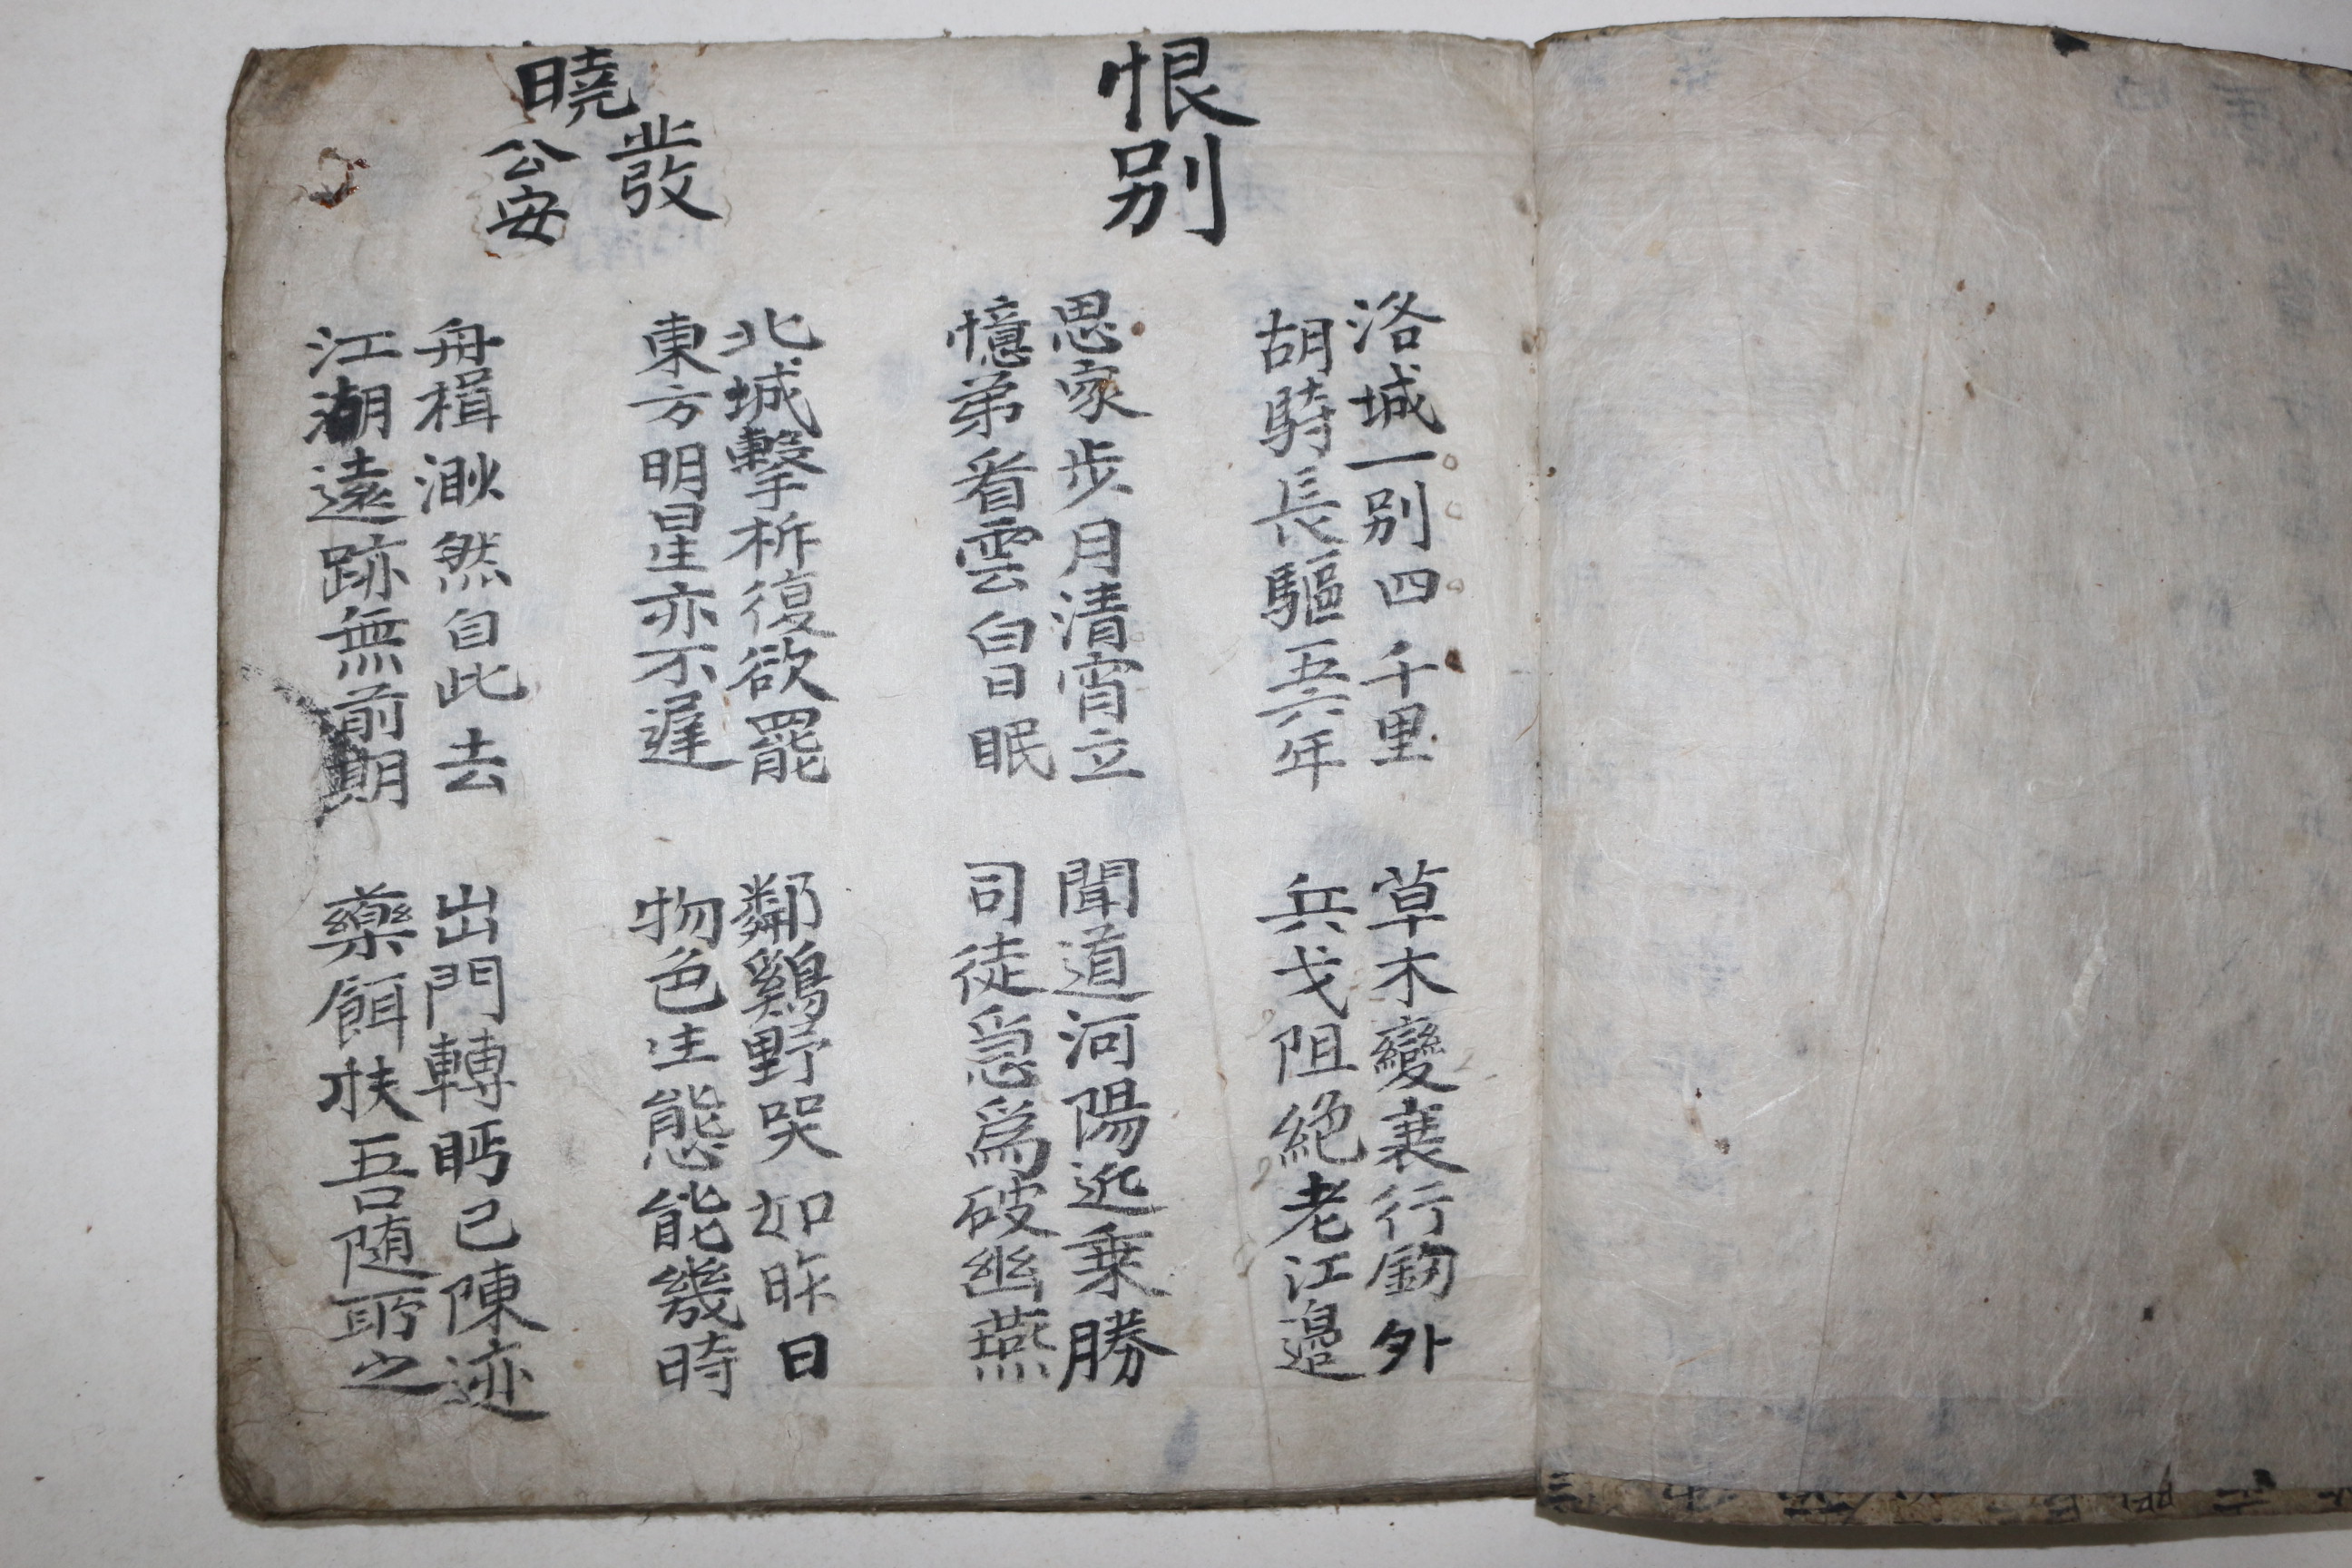 恨別
洛城一別四千里
胡騎長驅五六年
草木變衰行釰外
兵戈阻絶老江邉
思家步月清宵立
憶弟看雲白日眠
聞道河陽近乗勝
司徒急為破幽燕
曉發公安
北城擊柝復欲罷
東方明星亦不遲
鄰鷄野哭如昨日
物色生態能幾時
舟楫渺然自此去
江湖遠跡無前期
出門轉眄已陳迹
藥餌扶吾随所之